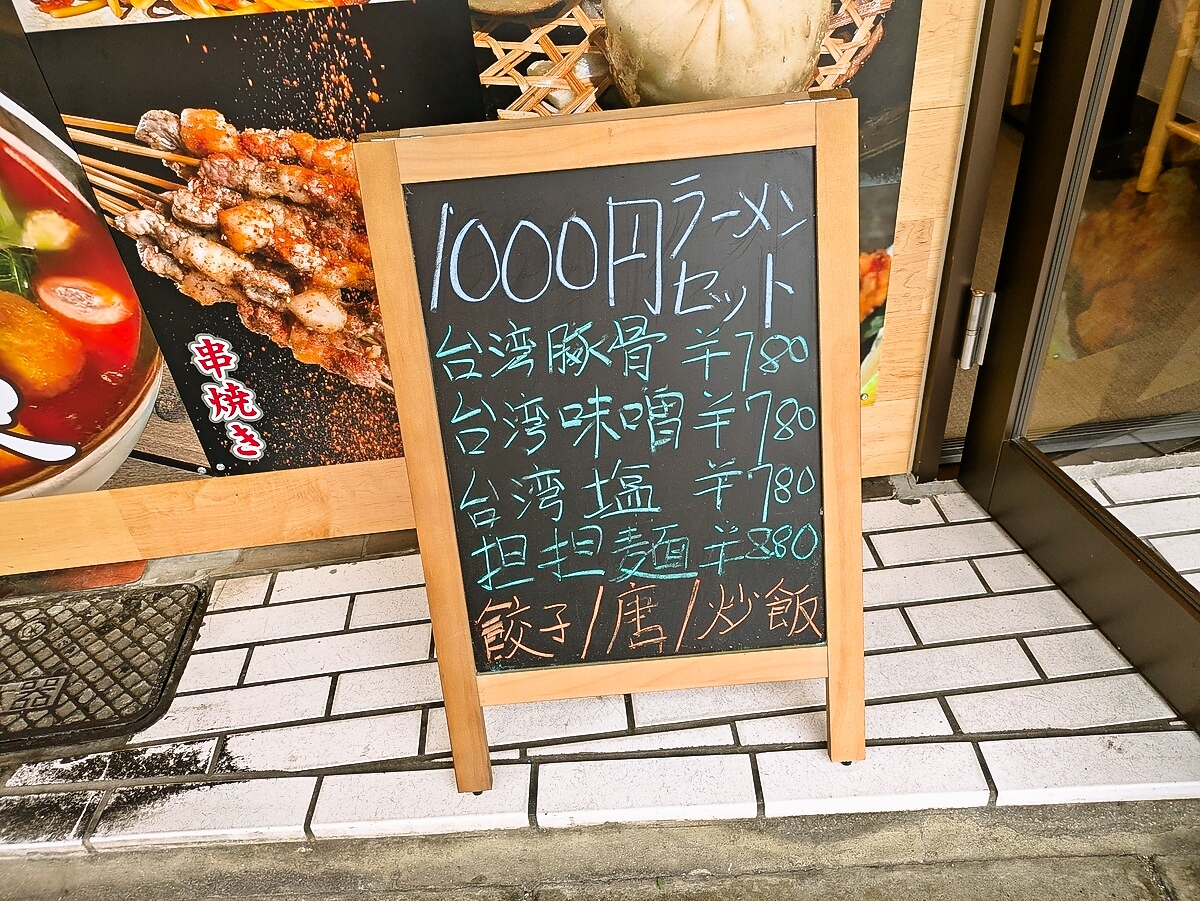 1000円ラーメン
セット
台湾豚骨 ¥780
台湾味噌 ¥780
台湾塩 ¥780
担担麺 ¥880
餃子/唐/炒飯
串焼き